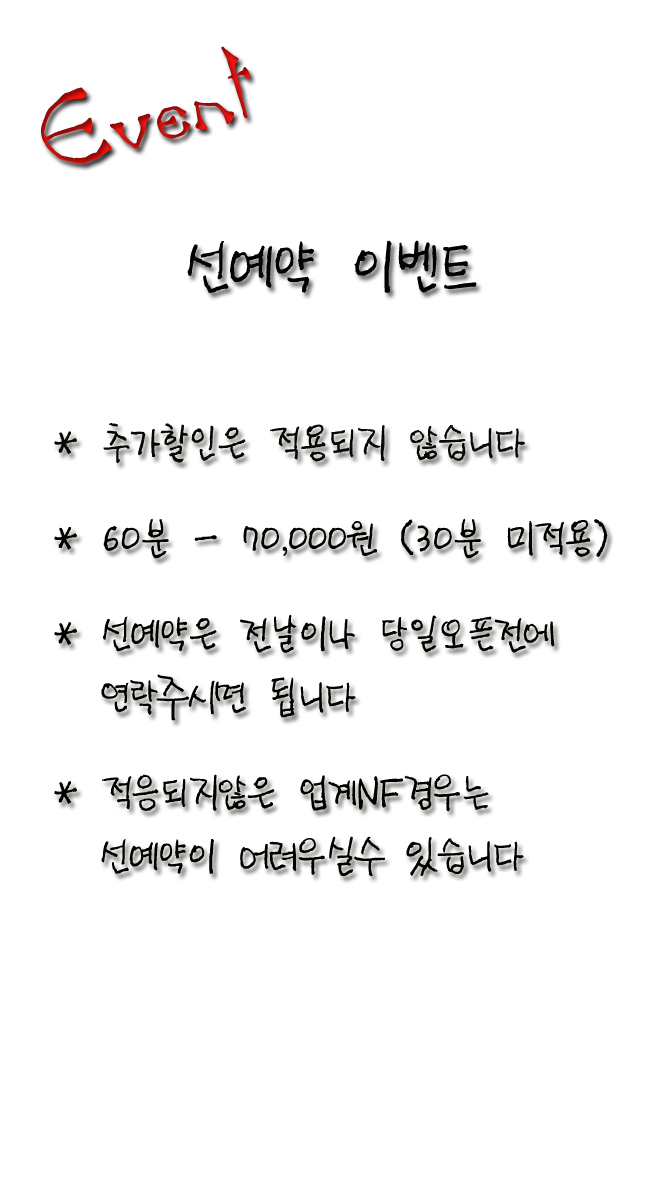 Event
선예약 이벤트
* 추가할인은 적용되지 않습니다
* 60분 - 70,000원 (30분 미적용)
* 선예약은 전날이나 당일오픈전에
연락주시면 됩니다
* 적응되지않은 업계NF경우는
선예약이 어려우실수 있습니다